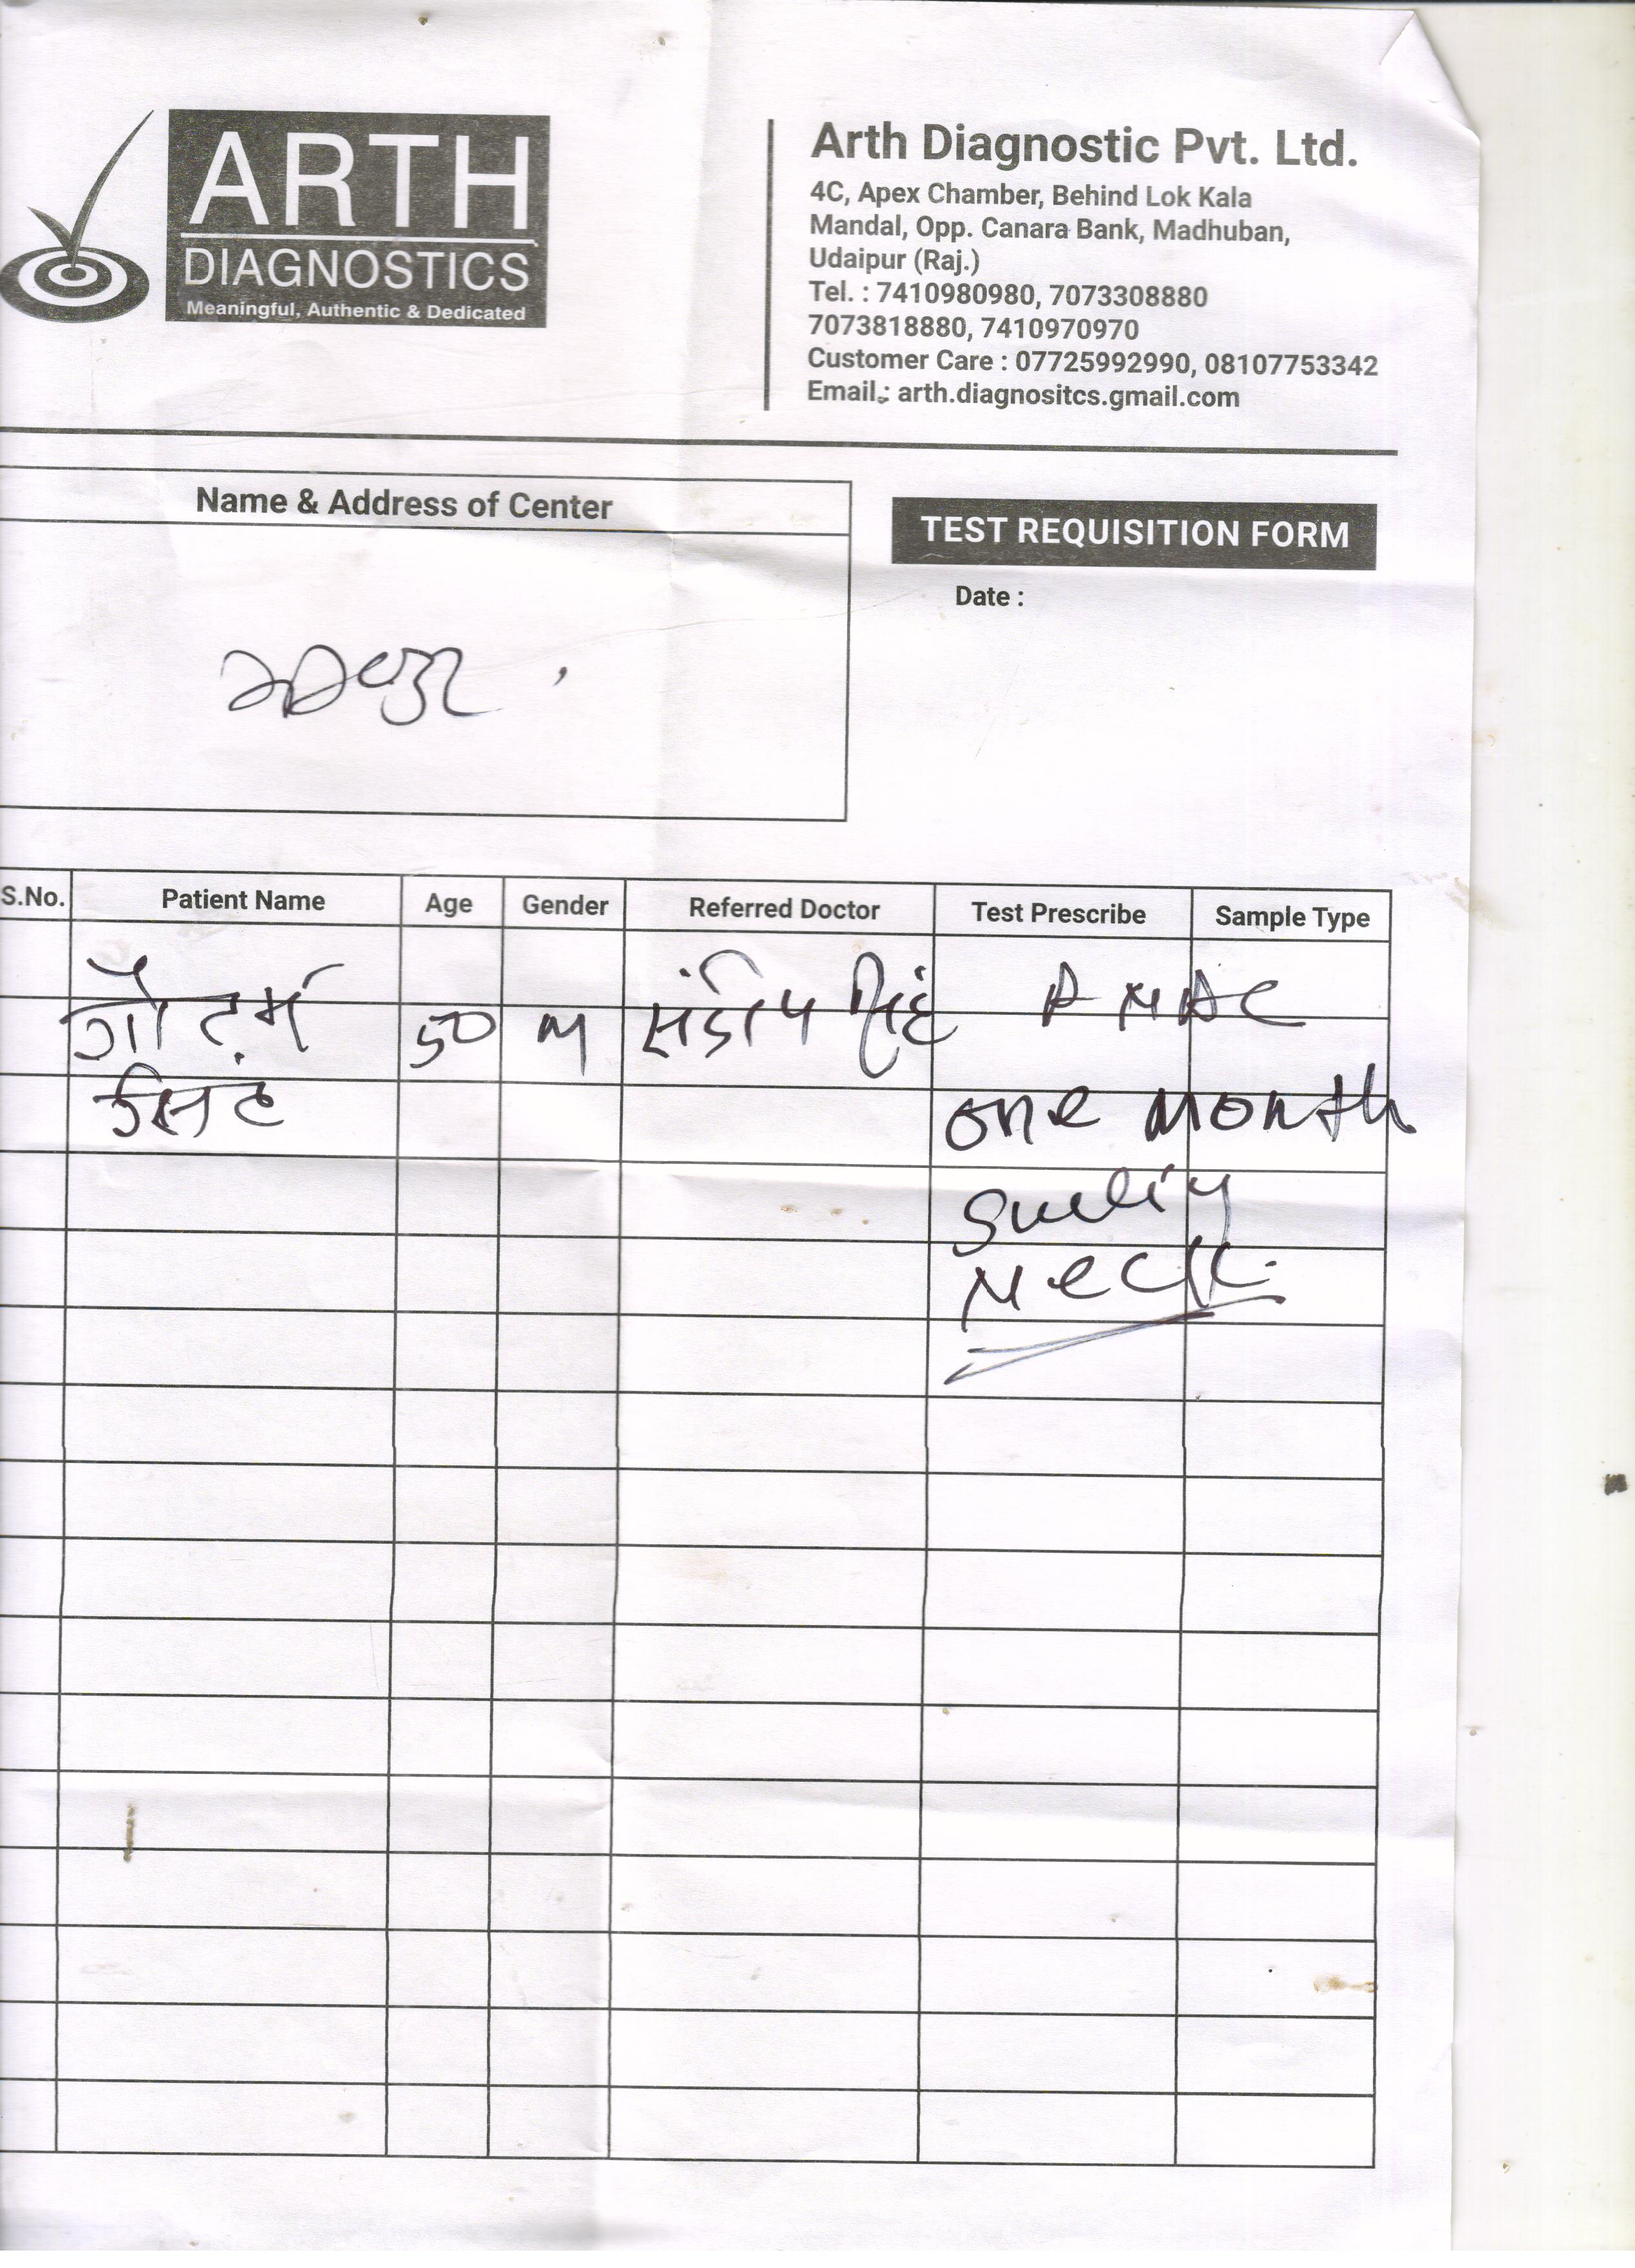 ARTH
DIAGNOSTICS
Meaningful, Authentic & Dedicated
Arth Diagnostic Pvt. Ltd.
4C, Apex Chamber, Behind Lok Kala
Mandal, Opp. Canara Bank, Madhuban,
Udaipur (Raj.)
Tel. : 7410980980, 7073308880
7073818880, 7410970970
Customer Care : 07725992990, 08107753342
Email.: arth.diagnositcs.gmail.com
Name & Address of Center
TEST REQUISITION FORM
Date :
S.No. Patient Name Age Gender Referred Doctor Test Prescribe Sample Type
50 M
सिंह
one month
Neck